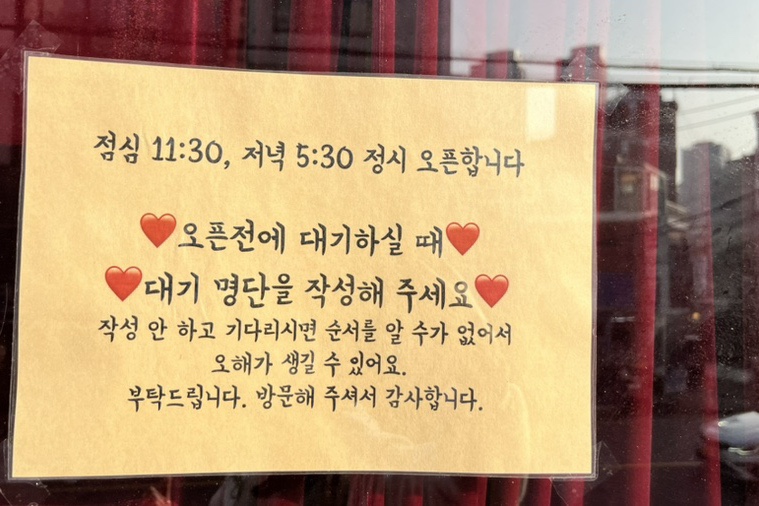 점심 11:30, 저녁 5:30 정시 오픈합니다
❤️오픈전에 대기하실 때❤️
❤️대기 명단을 작성해 주세요❤️
작성 안 하고 기다리시면 순서를 알 수가 없어서
오해가 생길 수 있어요.
부탁드립니다. 방문해 주셔서 감사합니다.